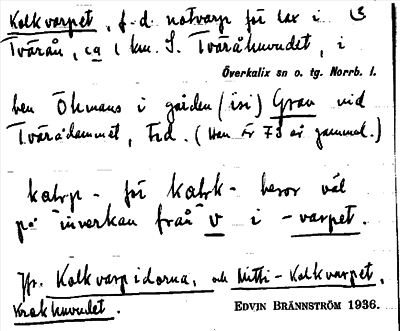 Kolkvarpet, f.d. notvarp för lax i
Tvärån, ca 1 km. S. Tvåråhuvudet, i
Överkalix sn o. tg. Norrb. l.
ben Öhmans i gården (isi) Gran vid
Tvärådammet, Frd. (Han är 73 år gammal.)
kalvp- för kalvk- beror väl
på inverkan från v i -varpet.
Jfr. Kolkvarpidorna, och Mitti-Kolkvarpet,
Krokhuvudet.
EDVIN BRÄNNSTRÖM 1936.